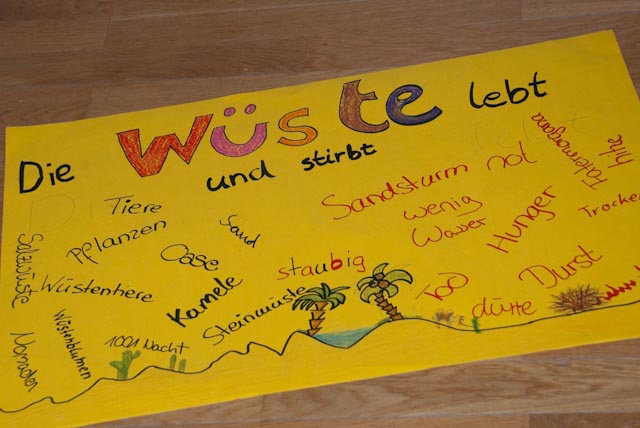 Die Wüste lebt
und stirbt
Tiere
Pflanzen
Sand
Oase
Salzwüste
Wüstentiere
Kamele
Steinwüste
Wüstenblumen
Nomaden
1001 Nacht
staubig
Sandsturm
not
wenig
Wasser
Hunger
Fatamorgana
Trocke
Tod
Durst
dürre